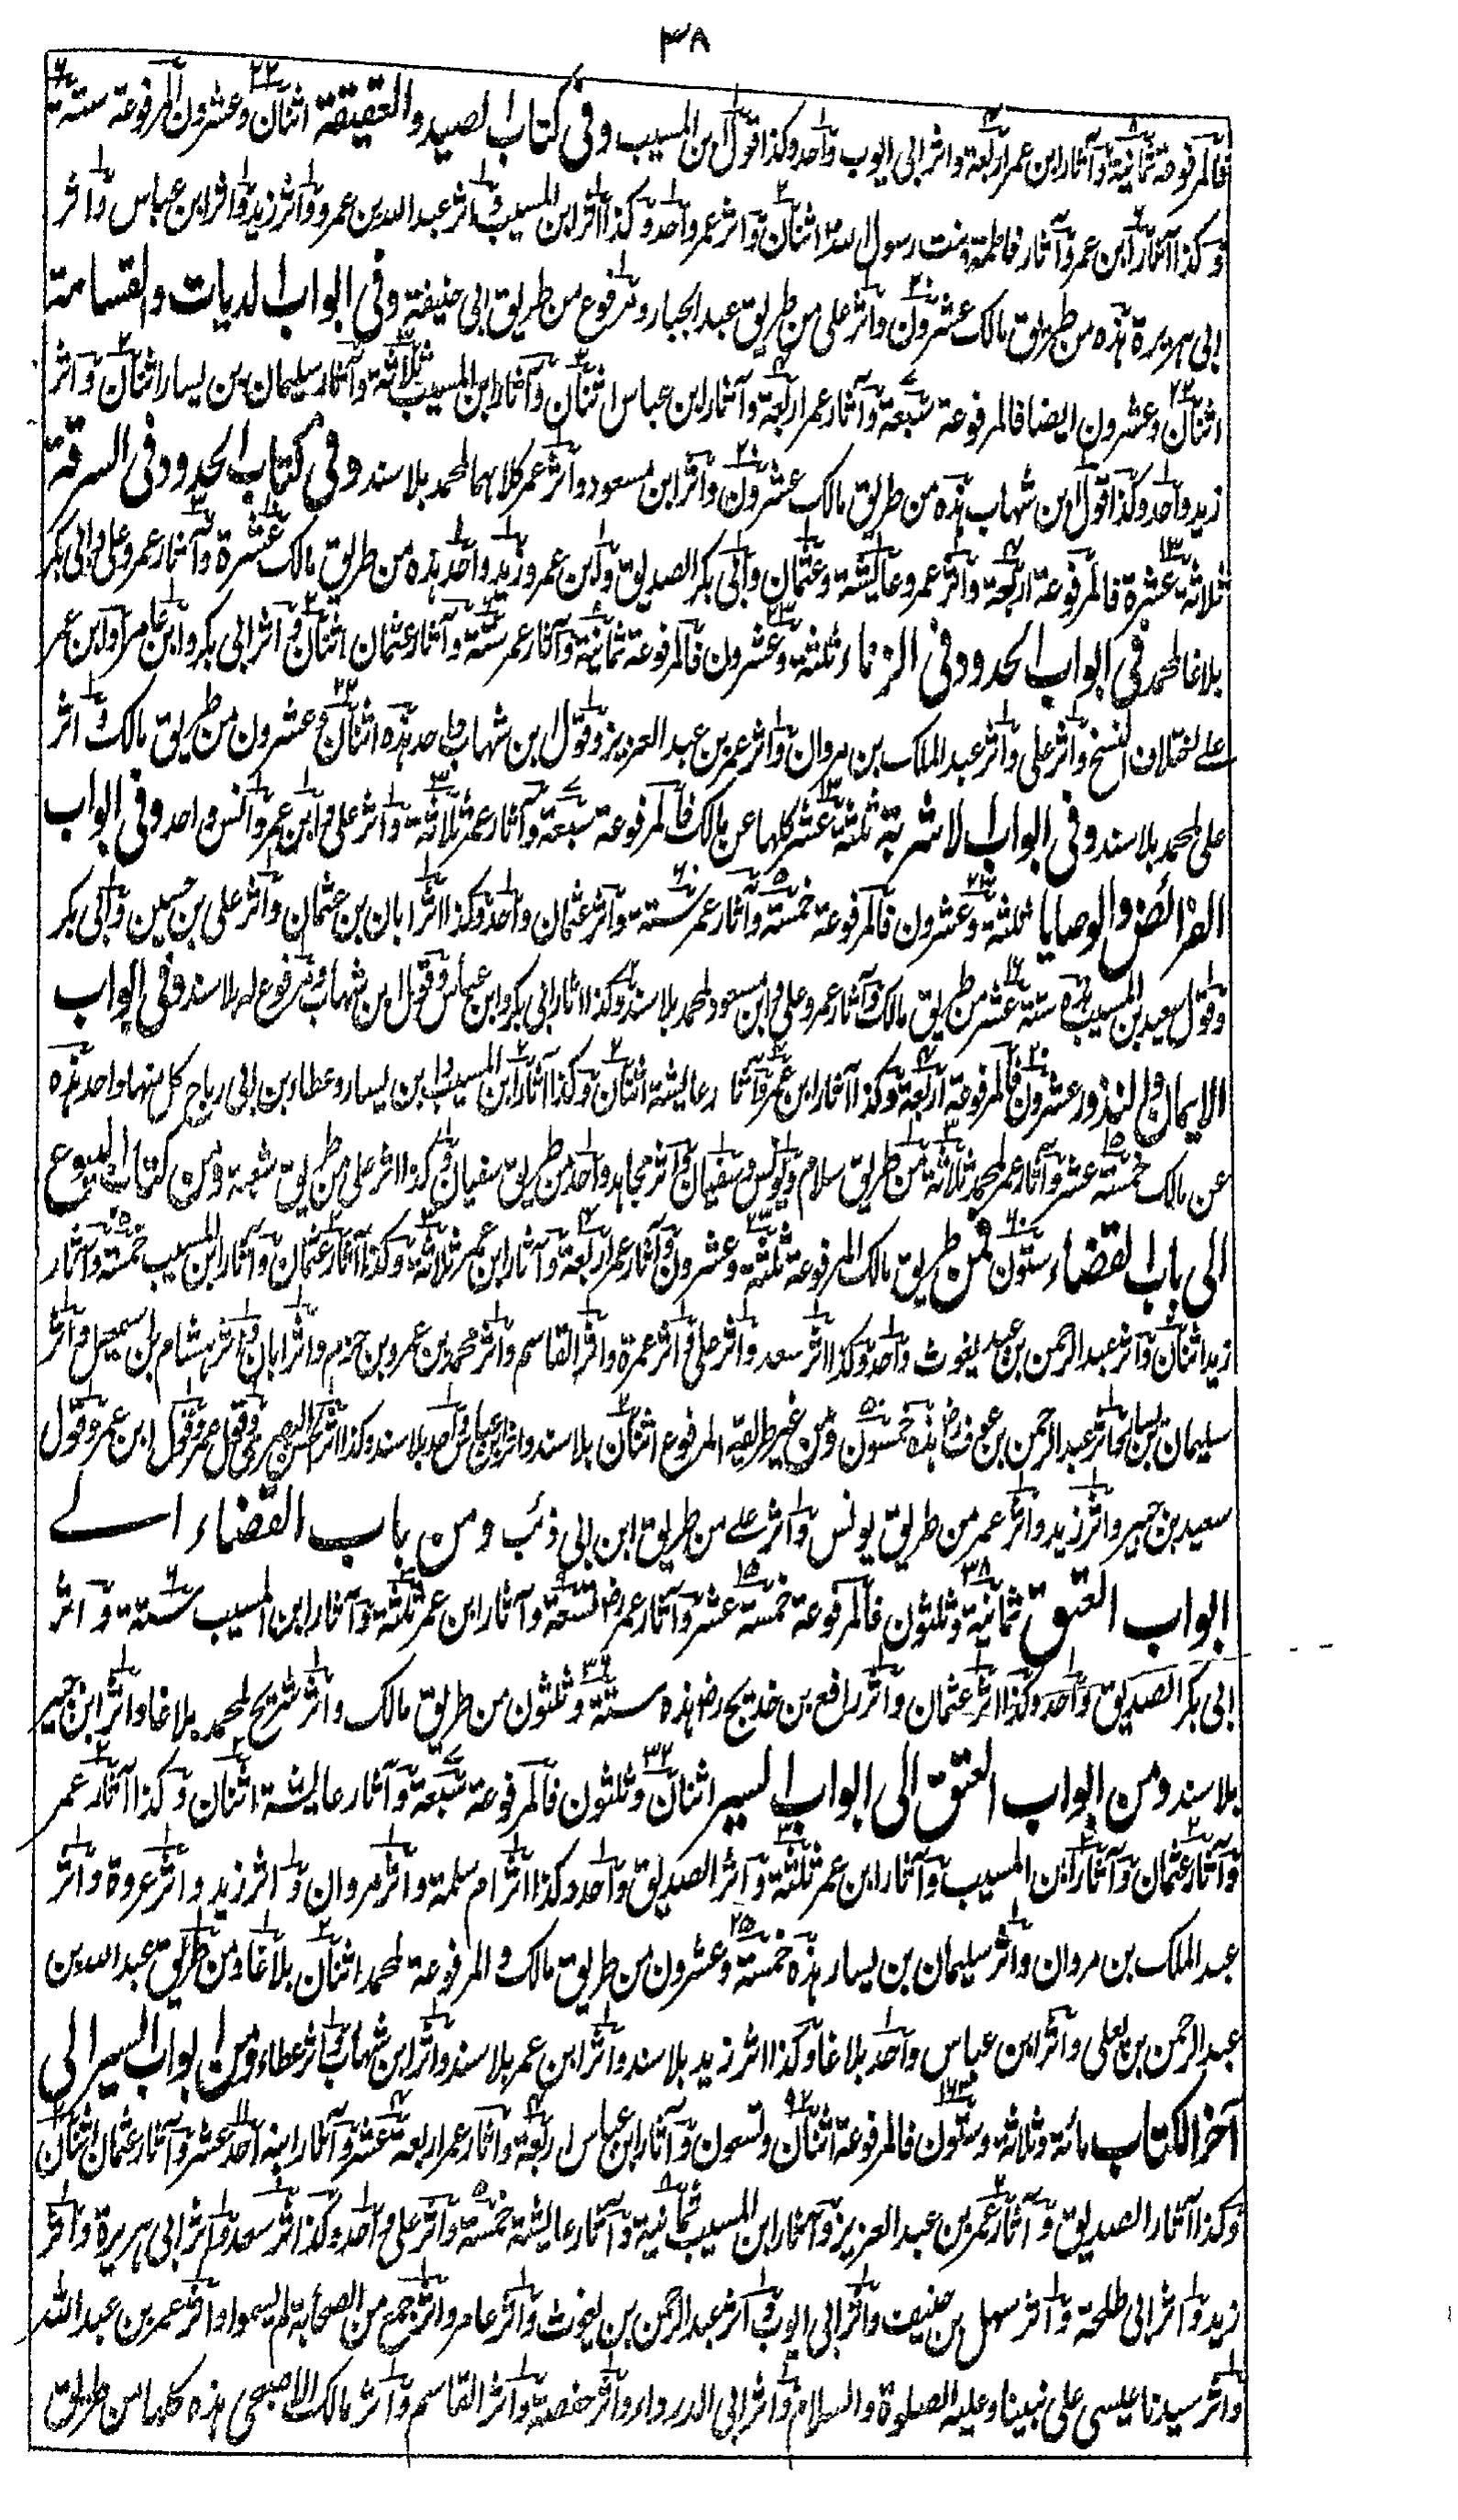 ٣٨
فالمرفوعة ثمانية وآثار ابن عمر اربعة واثر ابى ايوب واحد وكذا قول ابن المسيب وفى كتاب الصيد والعقيقة اثنان وعشرون المرفوعة ستة
وكذا آثار ابن عمر وآثار فاطمة بنت رسول الله اثنان واثر عمر واحد وكذا اثر ابن المسيب واثر عبد الله بن عمرو واثر زيد واثر ابن عباس واثر
ابى هريرة هذه من طريق مالك عشرون واثر على من طريق عبد الجبار ومرفوع من طريق ابى حنيفة وفى ابواب الديات والقسامة
اثنان وعشرون ايضا فالمرفوعة سبعة وآثار عمر اربعة وآثار ابن عباس اثنان وآثار ابن المسيب ثلاثة وآثار سليمان بن يسار اثنان واثر
زيد واحد وكذا قول ابن شهاب هذه من طريق مالك عشرون واثر ابن مسعود واثر عمر كلاهما لمحمد بلا سند وفى كتاب الحدود فى السرقة
ثلاثة عشرة فالمرفوعة اربعة واثر عمر وعايشة وعثمان وابى بكر الصديق وابن عمر وزيد واحد هذه من طريق مالك عشرة وآثار عمر وعلى وابى بكر
بلاغا لمحمد فى ابواب الحدود فى الزناء ثلثة وعشرون فالمرفوعة ثمانية وآثار عمر ستة وآثار عثمان اثنان واثر ابى بكر وابن عامر وابن عمر
على اختلاف النسخ واثر على واثر عبد الملك بن مروان واثر عمر بن عبد العزيز وقول ابن شهاب واحد هذه اثنان وعشرون من طريق مالك واثر
على لمحمد بلا سند وفى ابواب الاشربة ثلثة عشر كلها عن مالك فالمرفوعة سبعة وآثار عمر ثلاثة واثر على وابن عمر وانس واحد وفى ابواب
الفرائض والوصايا ثلثة وعشرون فالمرفوعة خمسة وآثار عمر ستة واثر عثمان واحد وكذا اثر ابان بن عثمان واثر على بن حسين وابى بكر
وقول سعيد بن المسيب هذه ستة عشر من طريق مالك وآثار عمر وعلى وابن مسعود لمحمد بلا سند وكذا اثار ابى بكر وابن عباس وقول ابن شهاب ومرفوع له بلا سند وفى ابواب
الايمان والنذور عشرون فالمرفوعة اربعة وكذا آثار ابن عمر وآثار عايشة اثنان وكذا آثار ابن المسيب وابن يسار وعطاء بن ابى رباح كل منها واحد هذه
عن مالك خمسة عشر وآثار عمر لمحمد ثلاثة من طريق سلام ويونس وسفيان واثر مجاهد واحد من طريق سفيان وكذا اثر على من طريق شعبة ومن كتاب البيوع
الى باب القضاء ستون فمن طريق مالك المرفوعة ثلثة وعشرون وآثار عمر اربعة وآثار ابن عمر ثلاثة وكذا آثار عثمان وآثار ابن المسيب خمسة وآثار
زيد اثنان واثر عبد الرحمن بن عبد يغوث واحد وكذا اثر سعد واثر على واثر عمرة واثر القاسم واثر محمد بن عمرو بن حزم واثر ابان واثر هشام بن اسمعيل واثر
سليمان بن يسار واثر عبد الرحمن بن عوف هذه خمسون ومن غير طريقه المرفوع اثنان بلا سند واثر ابن عباس واحد بلا سند وكذا اثر الحسن البصرى وقول عمر وقول ابن عمر وقول
سعيد بن جبير واثر زيد واثر عمر من طريق يونس واثر على من طريق ابن ابى ذئب ومن باب القضاء الے
ابواب العتق ثمانية وثلثون فالمرفوعة خمسة عشر وآثار عمر رض تسعة وآثار ابن عمر ثلثة وآثار ابن المسيب ستة واثر
ابى بكر الصديق واحد وكذا اثر عثمان واثر رافع بن خديج رض هذه ستة وثلثون من طريق مالك واثر شريح لمحمد بلاغا واثر ابن جبير
بلا سند ومن ابواب العتق الى ابواب السير اثنان وثلثون فالمرفوعة سبعة وآثار عايشة اثنان وكذا آثار عمر
وآثار عثمان وآثار ابن المسيب وآثار ابن عمر ثلثة واثر الصديق واحد وكذا اثر ام سلمة واثر مروان واثر زيد واثر عروة واثر
عبد الملك بن مروان واثر سليمان بن يسار هذه خمسة وعشرون من طريق مالك والمرفوعة لمحمد اثنان بلاغا ومن طريق عبد الله بن
عبد الرحمن بن يعلى واثر ابن عباس واحد بلاغا وكذا اثر زيد بلا سند واثر ابن عمر بلا سند واثر ابن شهاب واثر عطاء ومن ابواب السير الى
آخر الكتاب مائة وثلاثة وستون فالمرفوعة اثنان وتسعون وآثار ابن عباس اربعة وآثار عمر اربعة عشر وآثار ابنه احد عشر وآثار عثمان اثنان
وكذا آثار الصديق وآثار عمر بن عبد العزيز وآثار ابن المسيب ثمانية وآثار عايشة خمسة واثر على واحد وكذا اثر سعد واثر ابى هريرة واثر
زيد واثر ابى طلحة واثر سهل بن حنيف واثر ابى ايوب واثر عبد الرحمن بن يغوث واثر عامر واثر جمع من الصحابة لم يسموا واثر عمر بن عبد الله
واثر سيدنا عيسى على نبينا وعليه الصلوة والسلام واثر ابى الدرداء واثر حفصة واثر القاسم واثر مالك الاصبحى هذه كلها من طريق